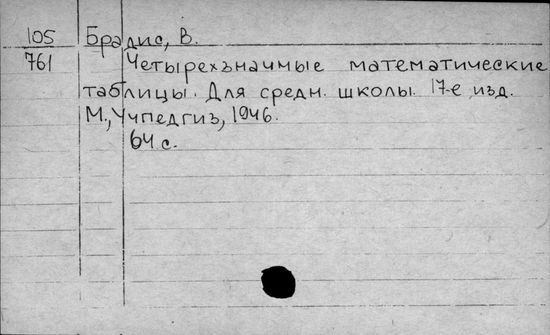 105 Брадис, В.
761 Четырехзначные математические
таблицы. Для средн. школы. 17-е изд.
М., Учпедгиз, 1946.
64 с.